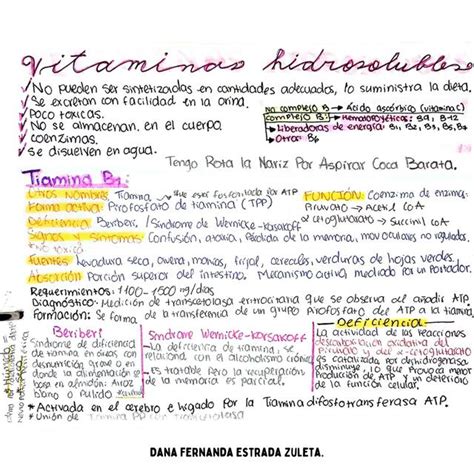 vitaminas hidrosolubles
✓No pueden ser sintetizadas en cantidades adecuadas, lo suministra la dieta.
✓Se excretan con facilidad en la orina.
✓Poco toxicas.
✓No se almacenan en el cuerpo
✓coenzimas.
✓se disuelven en agua.
No complejo B → Ácido ascórbico (vitamina C)
complejo B: → Hematopoyéticas: B9, B-12
→ Liberadoras de energía: B1, B2, B3, B5,
→ Otras B6
Tengo Rota la Nariz Por Aspirar Coca Barata.
Tiamina B1:
Otros Nombres: Tiamina que ser fosforilada por ATP
Forma activa: Pirofosfato de tiamina (TPP)
Deficiencia: Beriberi, / Síndrome de Wernicke-korsakoff
Signos y síntomas: Confusión, ataxia, Pérdida de la memoria, mov oculares no regulados.
FUNCIÓN: Coenzima de enzima:
Piruvato → Acetil CoA
α cetoglutarato → Succinil CoA
Fuentes: Levadura seca, avena, manias, frijol, cereales, verduras de hojas verdes,
Absorción: Porción superior del intestino. Mecanismo activo, mediado por un Portador.
Requerimientos: 1100 - 1500 ng/dias
Diagnóstico: Medición de transcetolasa eritrocitaria que se observa del añadir ATP
Formación: Se forma de la transferencia de un grupo Pirofosfato del ATP a la tiamina
Beriberi
Síndrome de deficiencia
de tiamina en áreas con
desnutrición grave o en
donde la alimentación se
basa en almidón: Arroz
blano o Pulido
Sindrome Wernicke-korsakoff
La deficiencia de tiamina, se
relaciona con el alcoholismo crónico
Es tratable pero la recuperación
de la memoria es parcial.
Deficiencia:
La actividad de las reacciones
descarboxilación oxidativa del
Piruvato y del α-cetoglutarato
es catalizada por deshidrogenasa
disminuye, lo que Provoca menor
Producción de ATP y un deterioro
de la función celular.
* Activada en el cerebro e higado por la Tiamina difosfotransferasa ATP.
* Unión de
DANA FERNANDA ESTRADA ZULETA.